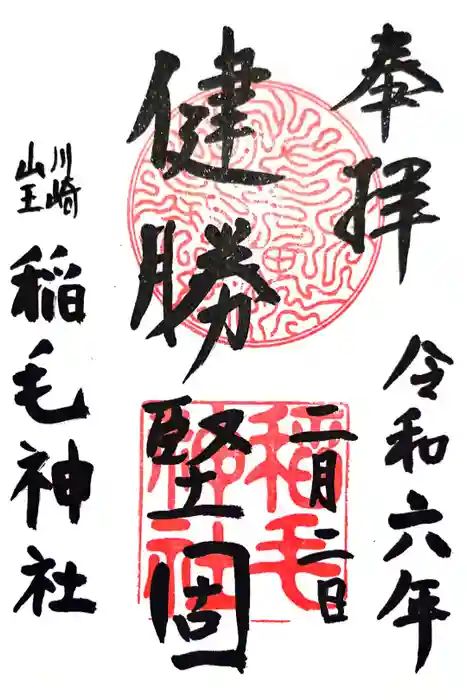 奉拝
令和六年
二月二日
健勝
堅固
稲毛
神社
川崎
山王
稲毛神社